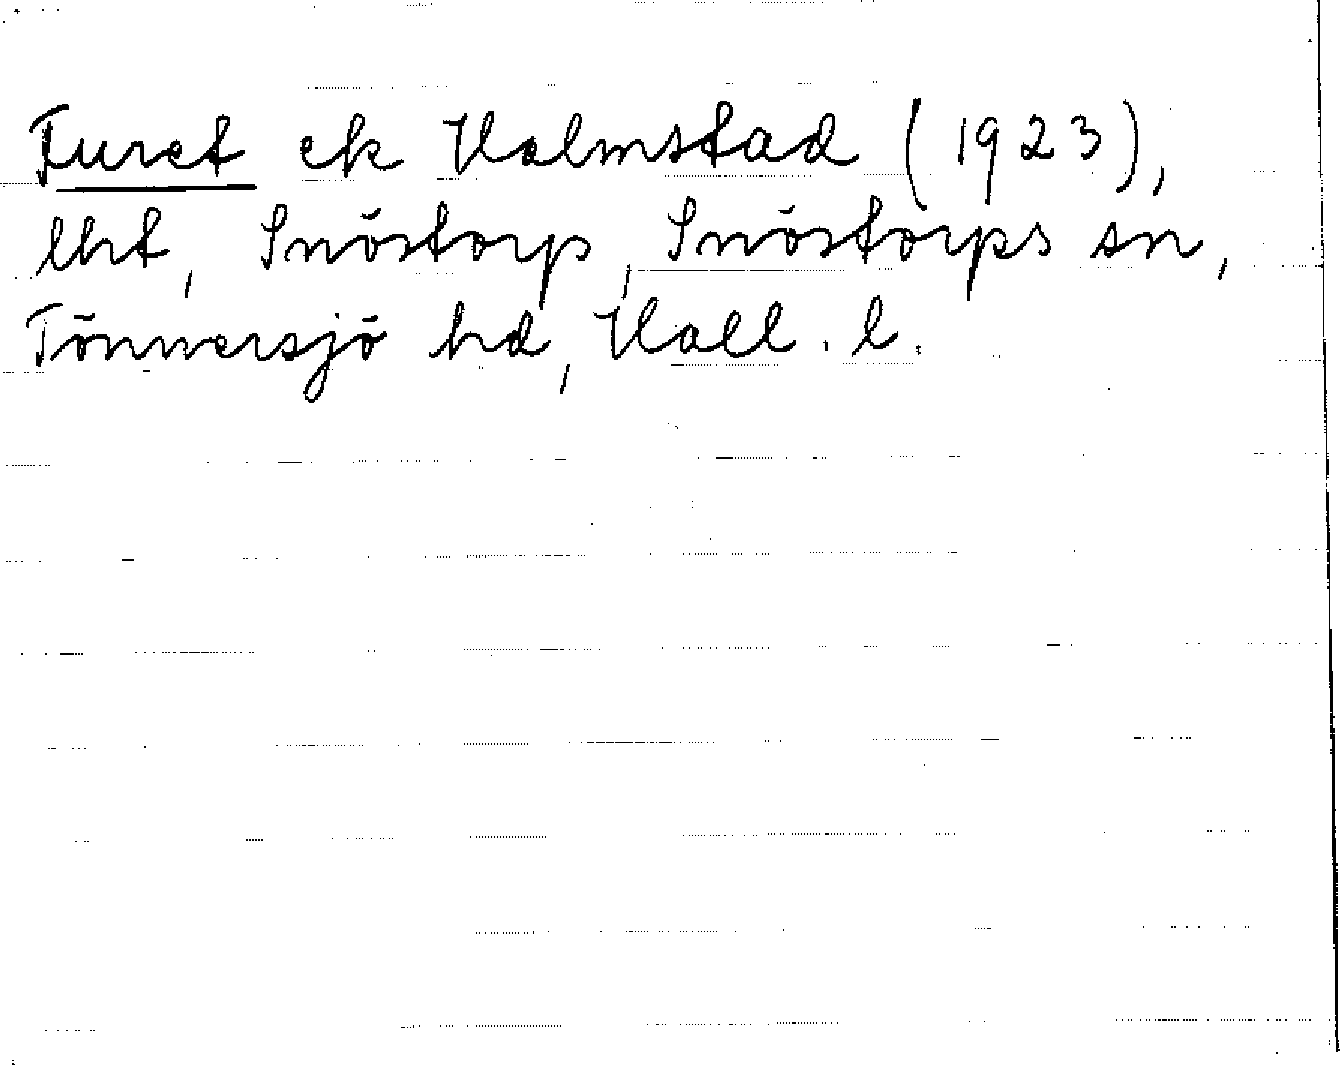 Furet ek Halmstad (1923),
lht, Snöstorp, Snöstorps sn,
Tönnersjö hd, Hall. l.